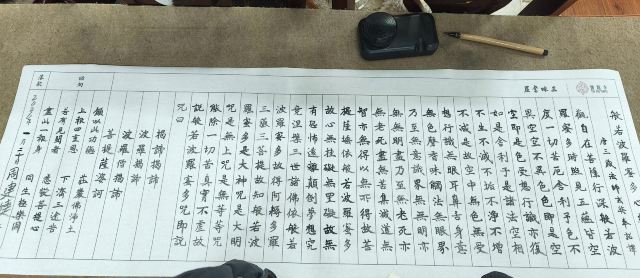 般若波羅蜜多心經
唐三藏法師玄奘奉詔譯
觀自在菩薩行深般若波
羅蜜多時照見五蘊皆空
度一切苦厄舍利子色不
異空空不異色色即是空
空即是色受想行識亦復
如是舍利子是諸法空相
不生不滅不垢不淨不增
不減是故空中無色無受
想行識無眼耳鼻舌身意
無色聲香味觸法無眼界
乃至無意識界無無明亦
無無明盡乃至無老死亦
無老死盡無苦集滅道無
智亦無得以無所得故菩
提薩埵依般若波羅蜜多
故心無挂礙無罣礙故無
有恐怖遠離顛倒夢想究
竟涅槃三世諸佛依般若
波羅蜜多故得阿耨多羅
三藐三菩提故知般若波
羅蜜多是大神咒是大明
咒是無上咒是無等等咒
能除一切苦真實不虛故
說般若波羅蜜多咒即說
咒曰
揭諦揭諦
波羅揭諦
波羅僧揭諦
菩提薩婆訶
回向
願以此功德 莊嚴佛淨土
上報四重恩 下濟三途苦
若有見聞者 悉發菩提心
盡此一報身 同生極樂國
落款
一月二十 周